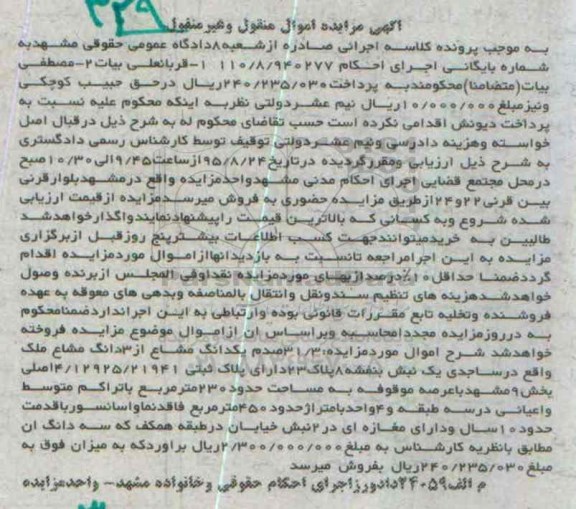 ۳۲۹
آگهی مزایده اموال منقول وغیرمنقول
به موجب پرونده کلاسه اجرائی صادره ازشعبه۸دادگاه عمومی حقوقی مشهدبه
شماره بایگانی اجرای احکام ۱۱۰/۸/۹۴۰۲۷۷ ۱-قربانعلی بیات۲-مصطفی
بیات(متضامنا)محکومندبه پرداخت۲۴۰/۲۳۵/۰۳۰ریال درحق حبیب کوچکی
ونیزمبلغ۱۰/۰۰۰/۰۰۰ریال نیم عشردولتی نظربه اینکه محکوم علیه نسبت به
پرداخت دیونش اقدامی نکرده است حسب تقاضای محکوم له به شرح ذیل درقبال اصل
خواسته وهزینه دادرسی ونیم عشردولتی توقیف توسط کارشناس رسمی دادگستری
به شرح ذیل ارزیابی ومقررگردیده درتاریخ۹۵/۸/۲۴ازساعت۹/۴۵الی۱۰/۳۰صبح
درمحل مجتمع قضایی اجرای احکام مدنی مشهدواحدمزایده واقع درمشهدبلوارقرنی
بین قرنی۲۲و۲۴ازطریق مزایده حضوری به فروش میرسدمزایده ازقیمت ارزیابی
شده شروع وبه کسانی که بالاترین قیمت راپیشنهادنمایندواگذارخواهدشد
طالبین به خریدمیتوانندجهت کسب اطلاعات بیشترپنج روزقبل ازبرگزاری
مزایده به این اجرامراجعه تانسبت به بازدیدانهاازاموال موردمزایده اقدام
گرددضمنا حداقل۱۰٪درصدازبهای موردمزایده نقداوفی المجلس ازبرنده وصول
خواهدشدهزینه های تنظیم سندونقل وانتقال بالمناصفه وبدهی های معوقه به عهده
فروشنده وتخلیه تابع مقررات قانونی بوده وارتباطی به این اجرانداردضمنامحکوم
به درروزمزایده مجددامحاسبه وبراساس ان ازاموال موضوع مزایده فروخته
خواهدشد شرح اموال موردمزایده:۳/۱۳صدم یکدانگ مشاع از۳دانگ مشاع ملک
واقع درساجدی یک نبش بنفشه۸پلاک۲۳دارای پلاک ثبتی ۴/۱۲۹۲۵/۲۱۹۴۱اصلی
بخش۹مشهدباعرصه موقوفه به مساحت حدود۲۳۰مترمربع باتراکم متوسط
واعیانی درسه طبقه و۴واحدبامتراژحدود۴۵۰مترمربع فاقدنماواسانسورباقدمت
حدود۱۰سال ودارای مغازه ای در۲نبش خیابان درطبقه همکف که سه دانگ ان
مطابق بانظریه کارشناس به مبلغ۲/۳۰۰/۰۰۰/۰۰۰ریال براوردکه به میزان فوق به
مبلغ۲۴۰/۲۳۵/۰۳۰ریال بفروش میرسد
م الف۲۴۰۵۹دادورزاجرای احکام حقوقی وخانواده مشهد- واحدمزایده